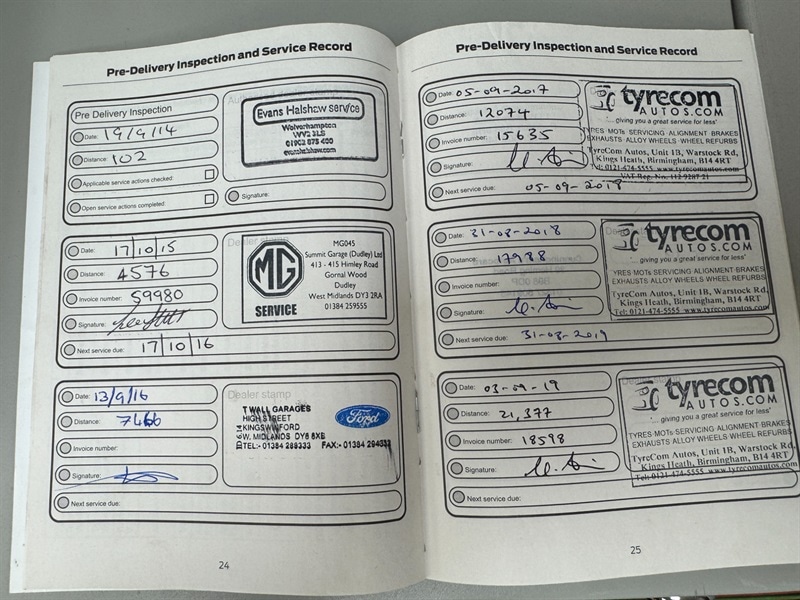 Pre-Delivery Inspection and Service Record
Pre Delivery Inspection
Date: 19/9/14
Distance: 102
Applicable service actions checked:
Open service actions completed:
Evans Halshaw service
Wolverhampton
WV2 3LS
01902 875 400
evanshalshaw.com
Signature:
Date: 17/10/15
Distance: 4576
Invoice number: 59980
Signature:
Next service due: 17/10/16
Dealer stamp
MG
SERVICE
MG045
Summit Garage (Dudley) Ltd
413 - 415 Himley Road
Gornal Wood
Dudley
West Midlands DY3 2RA
01384 259555
Date: 13/9/16
Distance: 7466
Invoice number:
Signature:
Next service due:
Dealer stamp
T WALL GARAGES
HIGH STREET
KINGSWINFORD
W. MIDLANDS DY6 8XB
TEL:- 01384 288333 FAX:- 01384 294332
Ford
24
Pre-Delivery Inspection and Service Record
Date: 05-09-2017
Distance: 12074
Invoice number: 15635
Signature:
Next service due: 05-09-2018
tyrecom
AUTOS.COM
... giving you a great service for less'
TYRES MOTs SERVICING ALIGNMENT BRAKES
EXHAUSTS ALLOY WHEELS WHEEL REFURBS
TyreCom Autos, Unit 1B, Warstock Rd,
Kings Heath, Birmingham, B14 4RT
Tel: 0121-474-5555 www.tyrecomautos.com
VAT Reg. No.
Date: 31-08-2018
Distance: 17988
Invoice number:
Signature:
Next service due: 31-08-2019
tyrecom
AUTOS.COM
... giving you a great service for less"
TYRES MOTs SERVICING ALIGNMENT BRAKES
EXHAUSTS ALLOY WHEELS WHEEL REFURBS
TyreCom Autos, Unit 1B, Warstock Rd,
Kings Heath, Birmingham, B14 4RT
Tel: 0121-474-5555 www.tyrecomautos.com
Date: 03-09-19
Distance: 21,377
Invoice number: 18598
Signature:
Next service due:
tyrecom
AUTOS.COM
... giving you a great service for less"
TYRES MOTs SERVICING ALIGNMENT BRAKES
EXHAUSTS ALLOY WHEELS WHEEL REFURBS
TyreCom Autos, Unit 1B, Warstock Rd,
Kings Heath, Birmingham, B14 4RT
Tel: 0121-474-5555 www.tyrecomautos.com
25